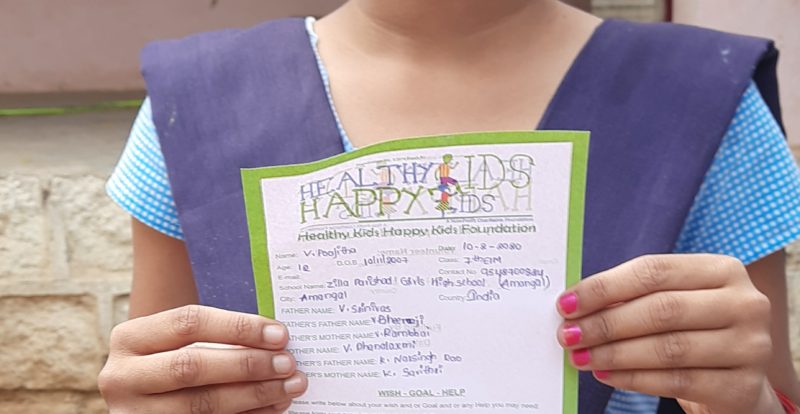 HEALTHY KIDS
HAPPY KIDS
Healthy Kids Happy Kids Foundation
Name: V. Poojitha Date: 10-2-2020
Age: 12 D.O.B. 10/11/2007 Class: 7th E/M
E-mail: Contact No
School Name: Zilla Parishad Girls High School (Amangal)
City: Amangal Country: India
FATHER NAME: V. Srinivas
FATHER'S FATHER NAME: V. Bheemji
MOTHER NAME: V. Rambhai
MOTHER NAME: V. Dhanalaxmi
FATHER'S NAME: K. Narsingh Rao
MOTHER NAME: K. Sarithri
WISH - GOAL - HELP
Please write below about your wish and or Goal and or any Help you may need